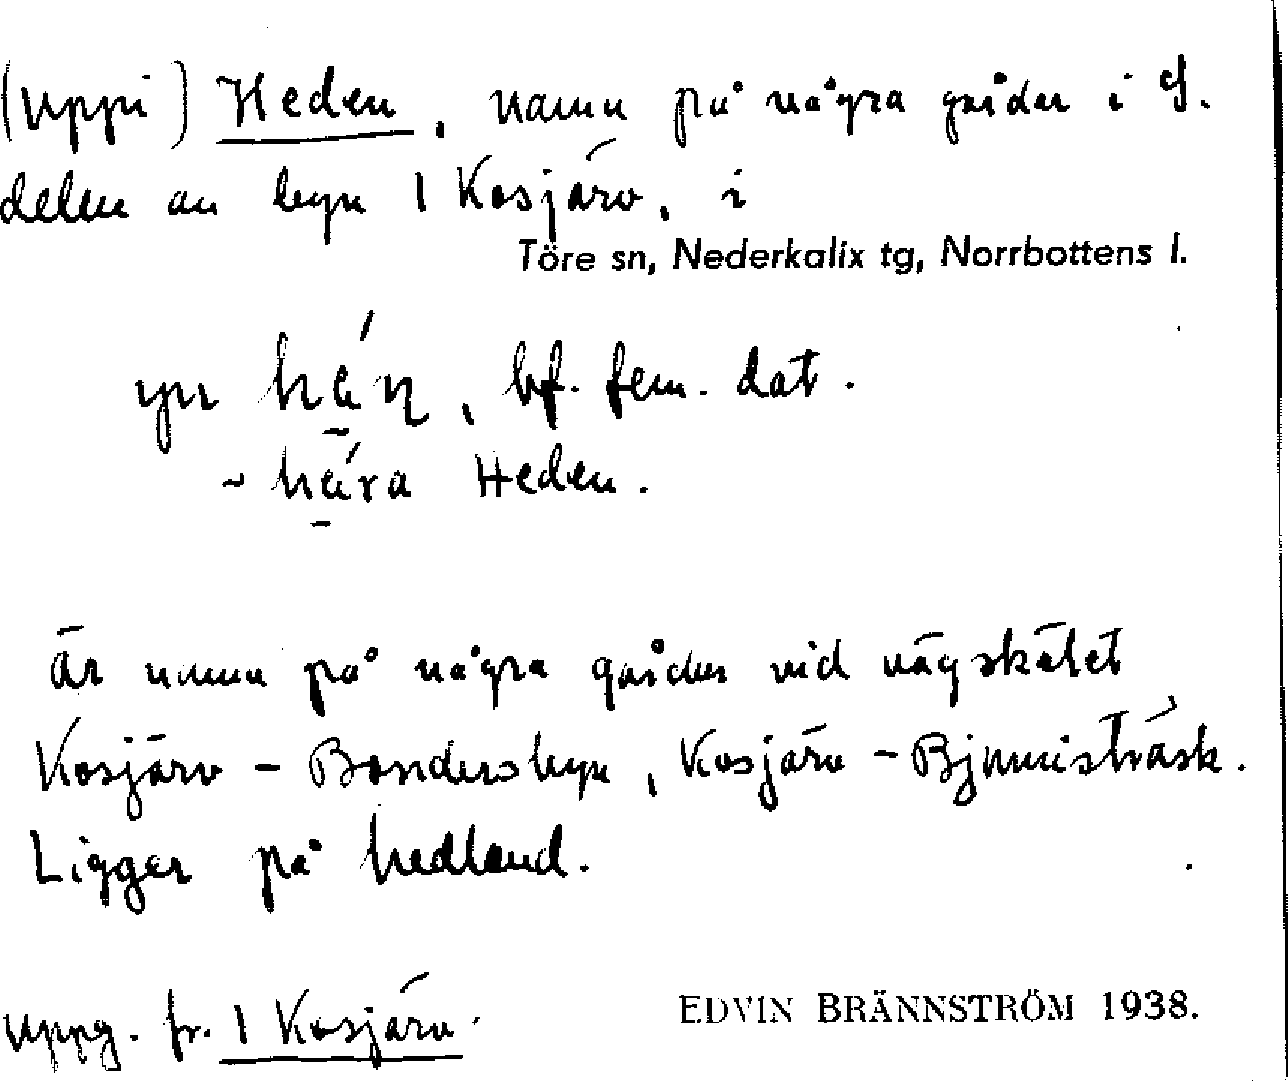 (uppi) Heden, namn på några gårder i S.
delen av byn 1 Kosjärv, i
Töre sn, Nederkalix tg, Norrbottens l.
bf. fem. dat.
~ hära Heden.
är namn på några gårder vid vägskälet
Kosjärv - Bondersbyn, Kosjärv - Bjumisträsk.
Ligger på hedland.
uppg. fr. 1 Kosjärv.
EDVIN BRÄNNSTRÖM 1938.